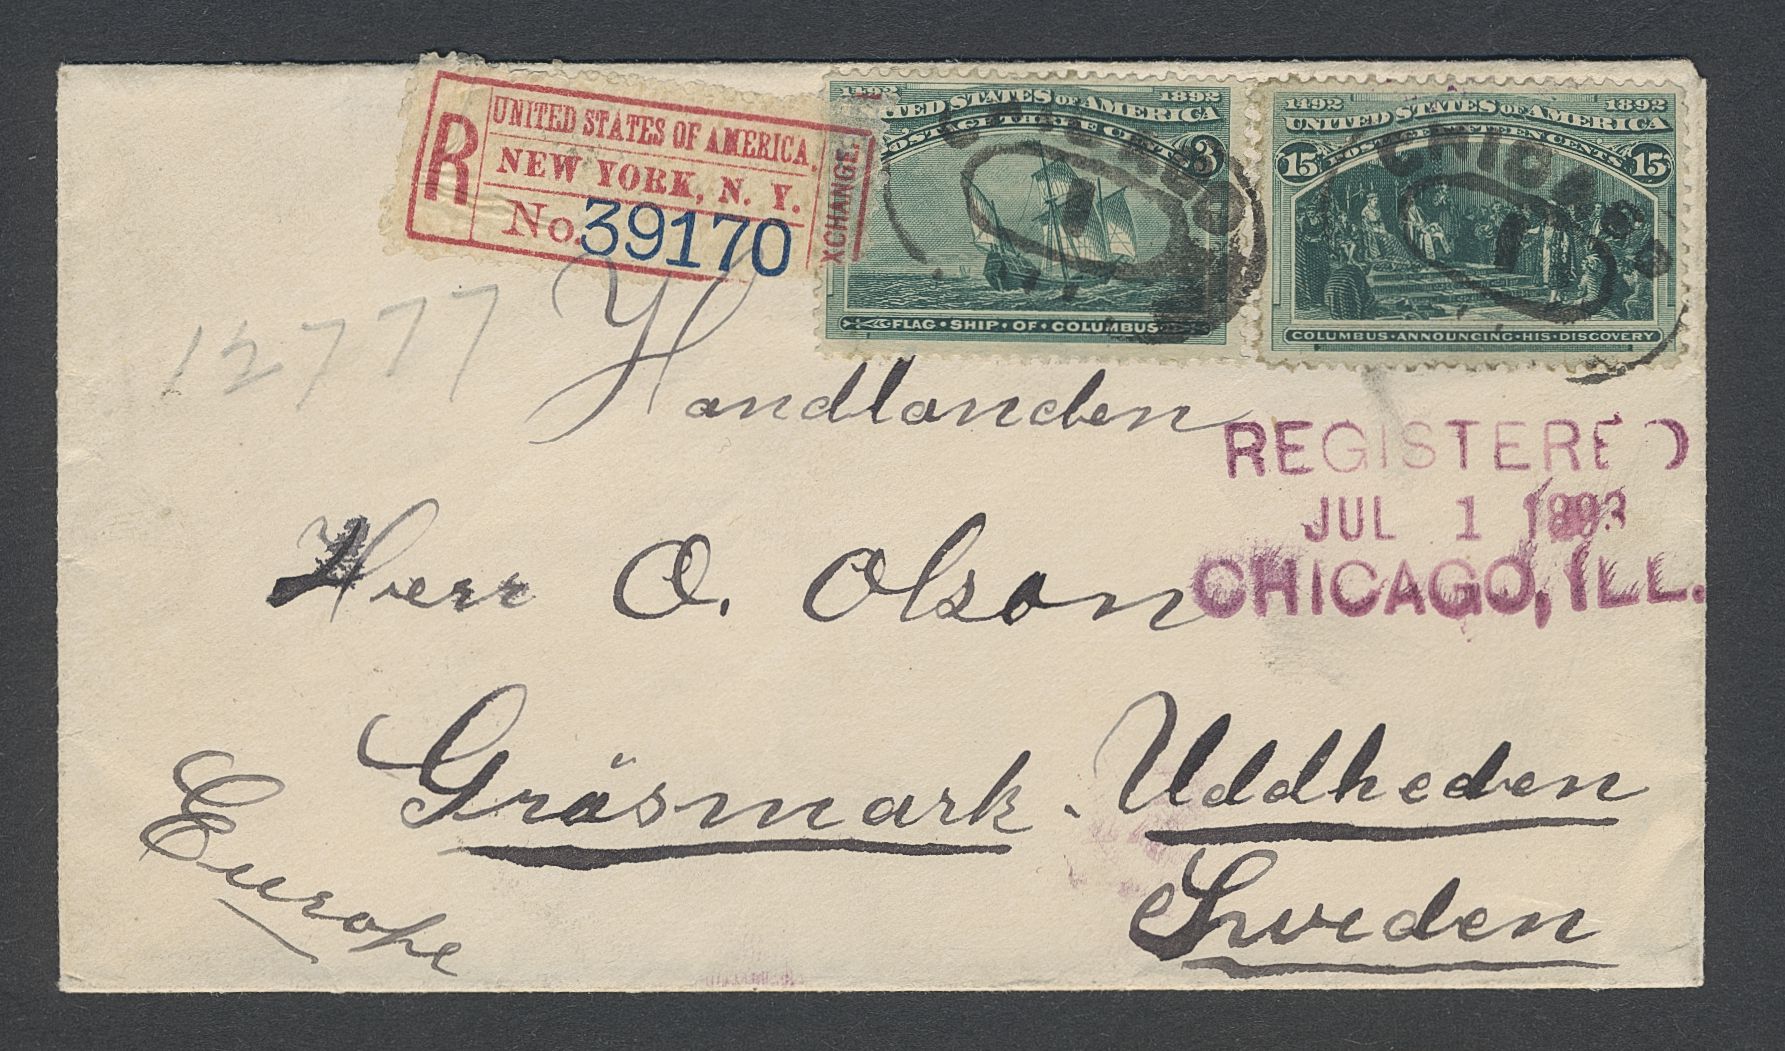 R
UNITED STATES OF AMERICA.
NEW YORK, N. Y.
No. 39170
XCHANGE.
1492 1892
UNITED STATES OF AMERICA
POSTAGE THREE CENTS 3
FLAG·SHIP·OF·COLUMBUS
CHICAGO
1
1492 1892
UNITED STATES OF AMERICA
15 POSTAGE FIFTEEN CENTS 15
COLUMBUS·ANNOUNCING·HIS·DISCOVERY
CHICAGO
1
12777
Handlanden
REGISTERED
JUL 1 1893
CHICAGO, ILL.
Herr O. Olson
Gräsmark. Uddheden
Europe
Sweden